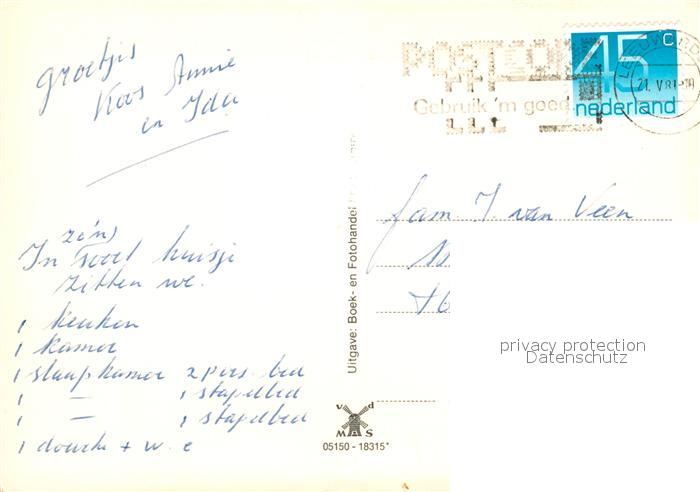 groetjes
Koos Annie
en Ida
zo'n
In soort huisje
zitten we.
1 keuken
1 kamer
1 slaapkamer 2 pers. bed
1 — 1 stapelbed
1 — 1 stapelbed
1 douche + w.c
Uitgave: Boek- en Fotohandel
v d
MAS
05150 - 18315*
POSTCODE
Gebruik 'm goed
45 c
nederland
21. V 81
fam. J. van Veen
privacy protection
Datenschutz